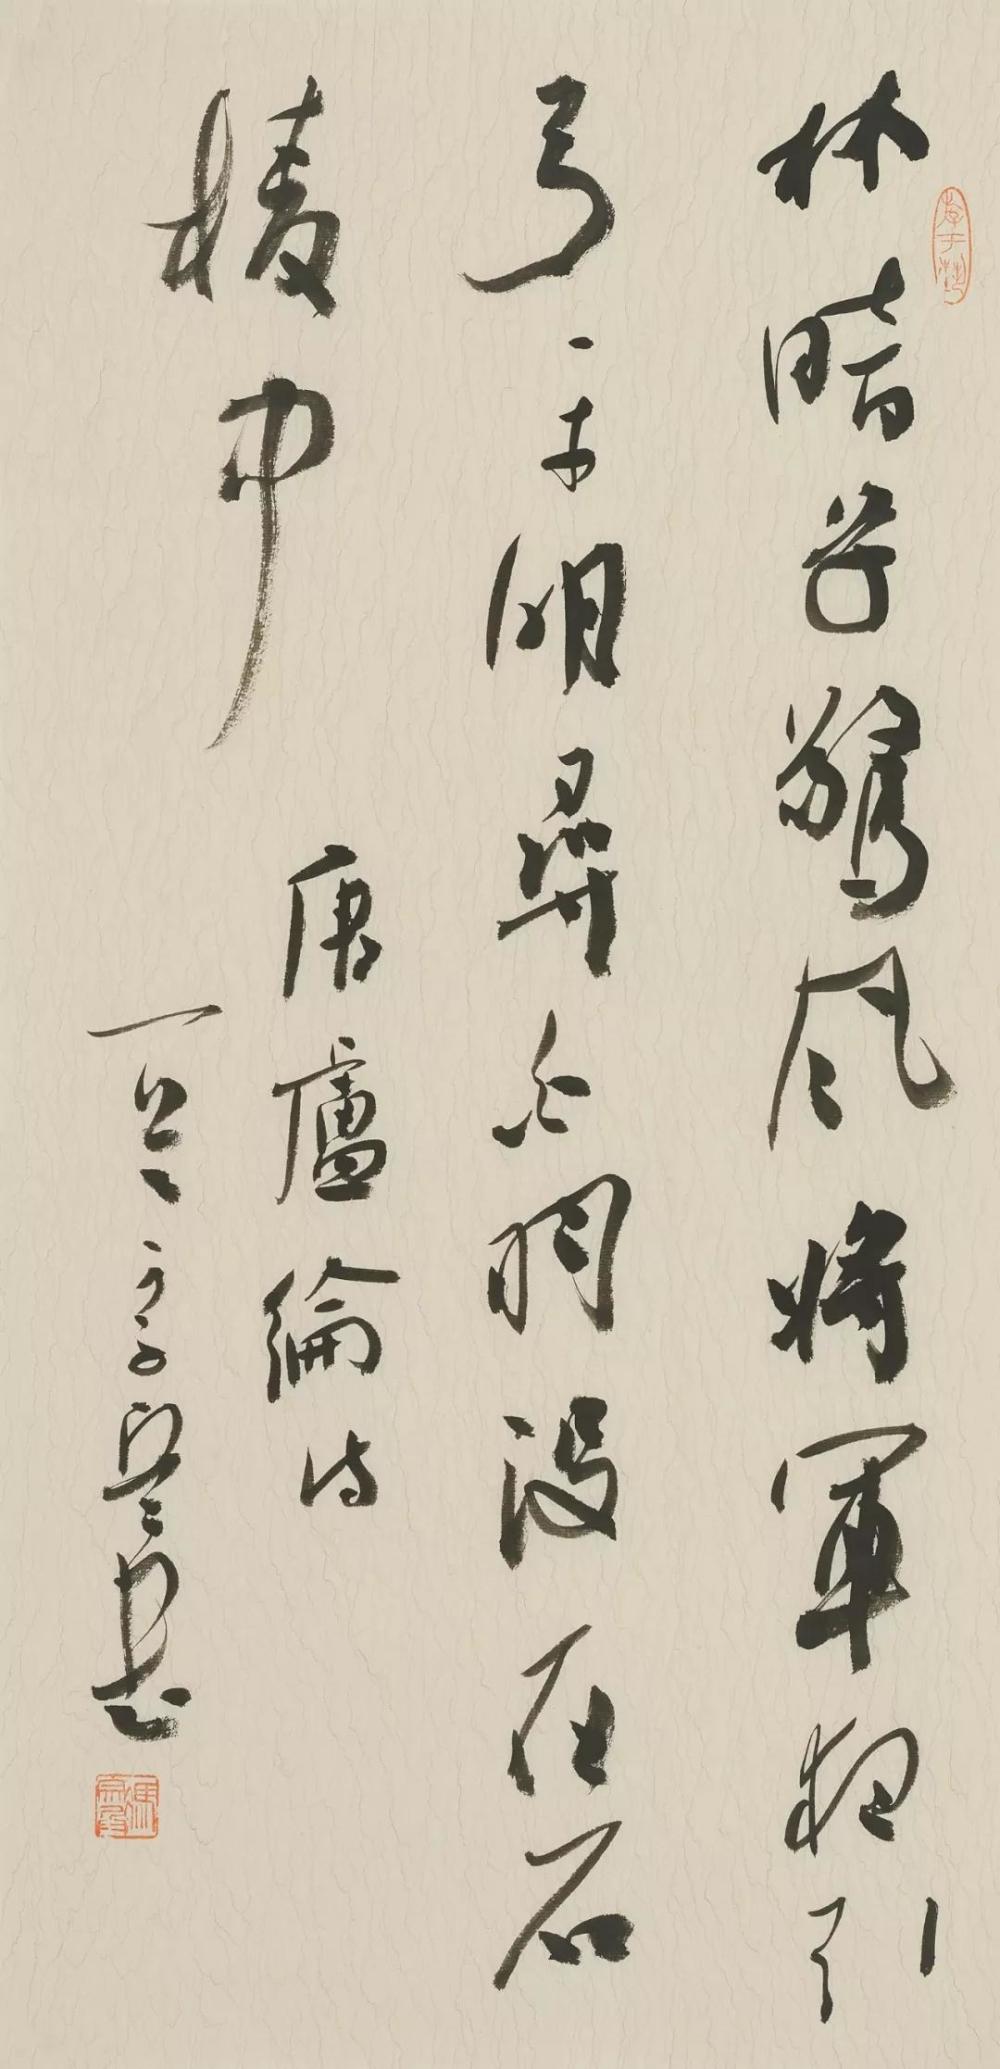 林暗草驚風將軍夜引
弓平明尋白羽沒在石
棱中
唐盧綸詩
書